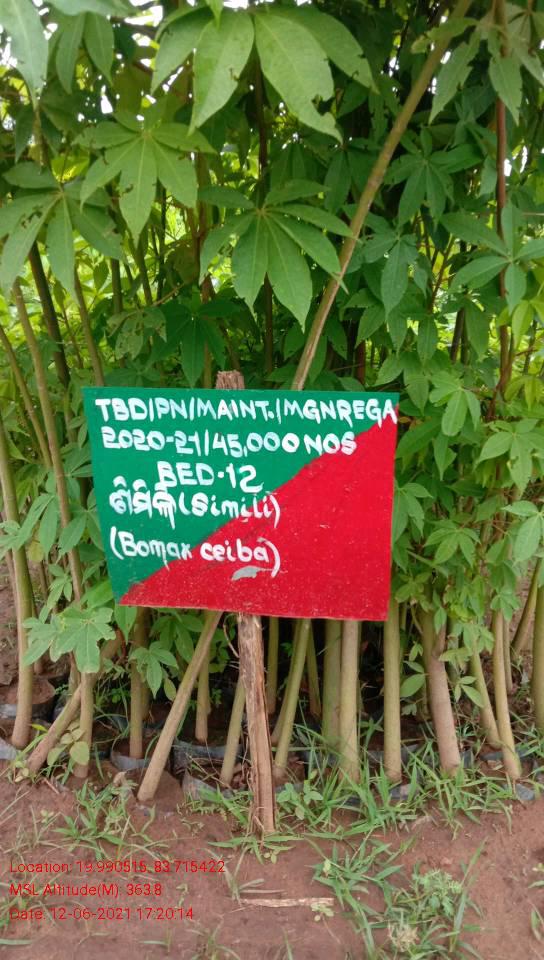 TBD/PN/MAINT./MGNREGA
2020-21/45,000 NOS
BED-12
ଶିମିଳି (Simili)
(Bomax ceiba)
Location: 19.990515, 83.715422
MSL Altitude(M): 363.8
Date: 12-06-2021 17:20:14